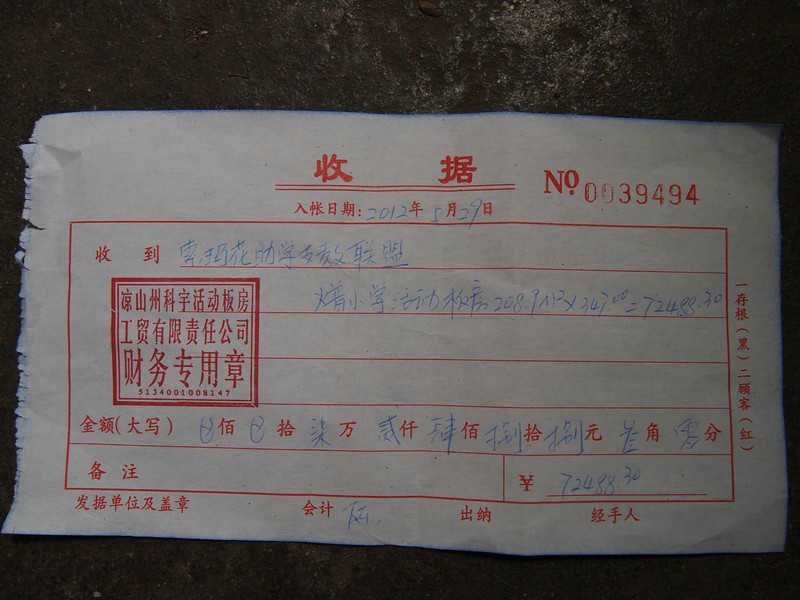 收 据
No 0039494
入帐日期：2012年5月29日
收 到 索玛花助学支教联盟
小学活动板房208.9M²×347.00=72488.30
凉山州科宇活动板房
工贸有限责任公司
财务专用章
5134001008147
金额（大写） 佰 拾 柒万 贰仟 肆佰 捌拾 捌元 叁角 零分
备 注
¥ 72488.30
发据单位及盖章 会计 出纳 经手人
一存根（黑）二顾客（红）